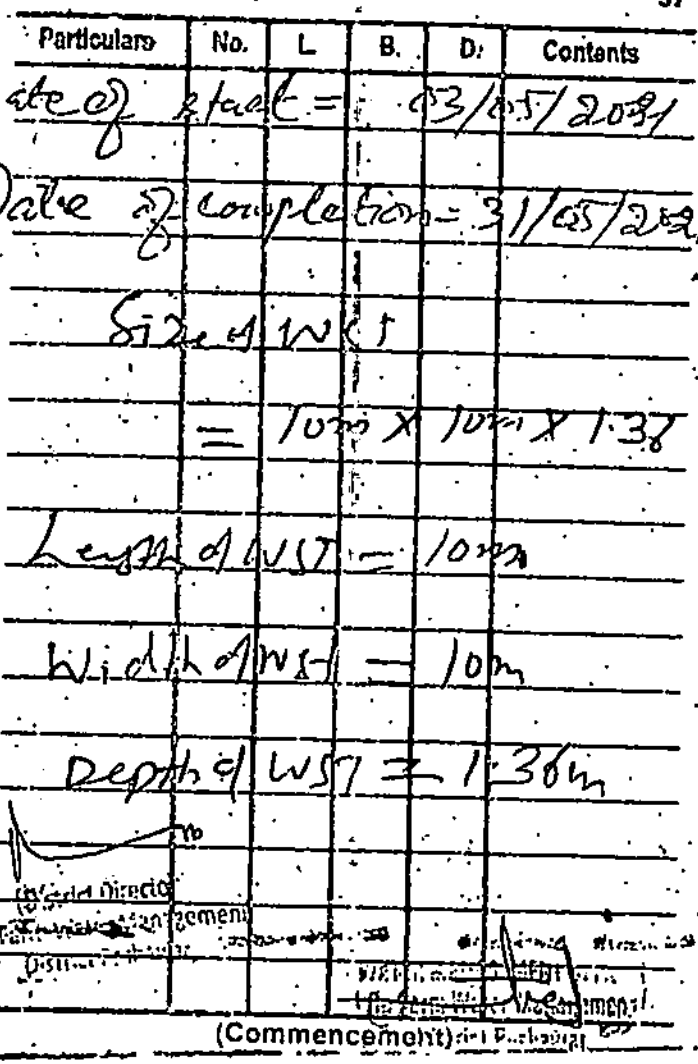 Particulars No. L. B. D. Contents
ate of start = 03/05/2021
Date of completion = 31/05/202
Size of WST
= 10m X 10m X 1.36
Length of WST = 10m
Width of WST = 10m
Depth of WST = 1.36m
Director
Management
Management
(Commencement)